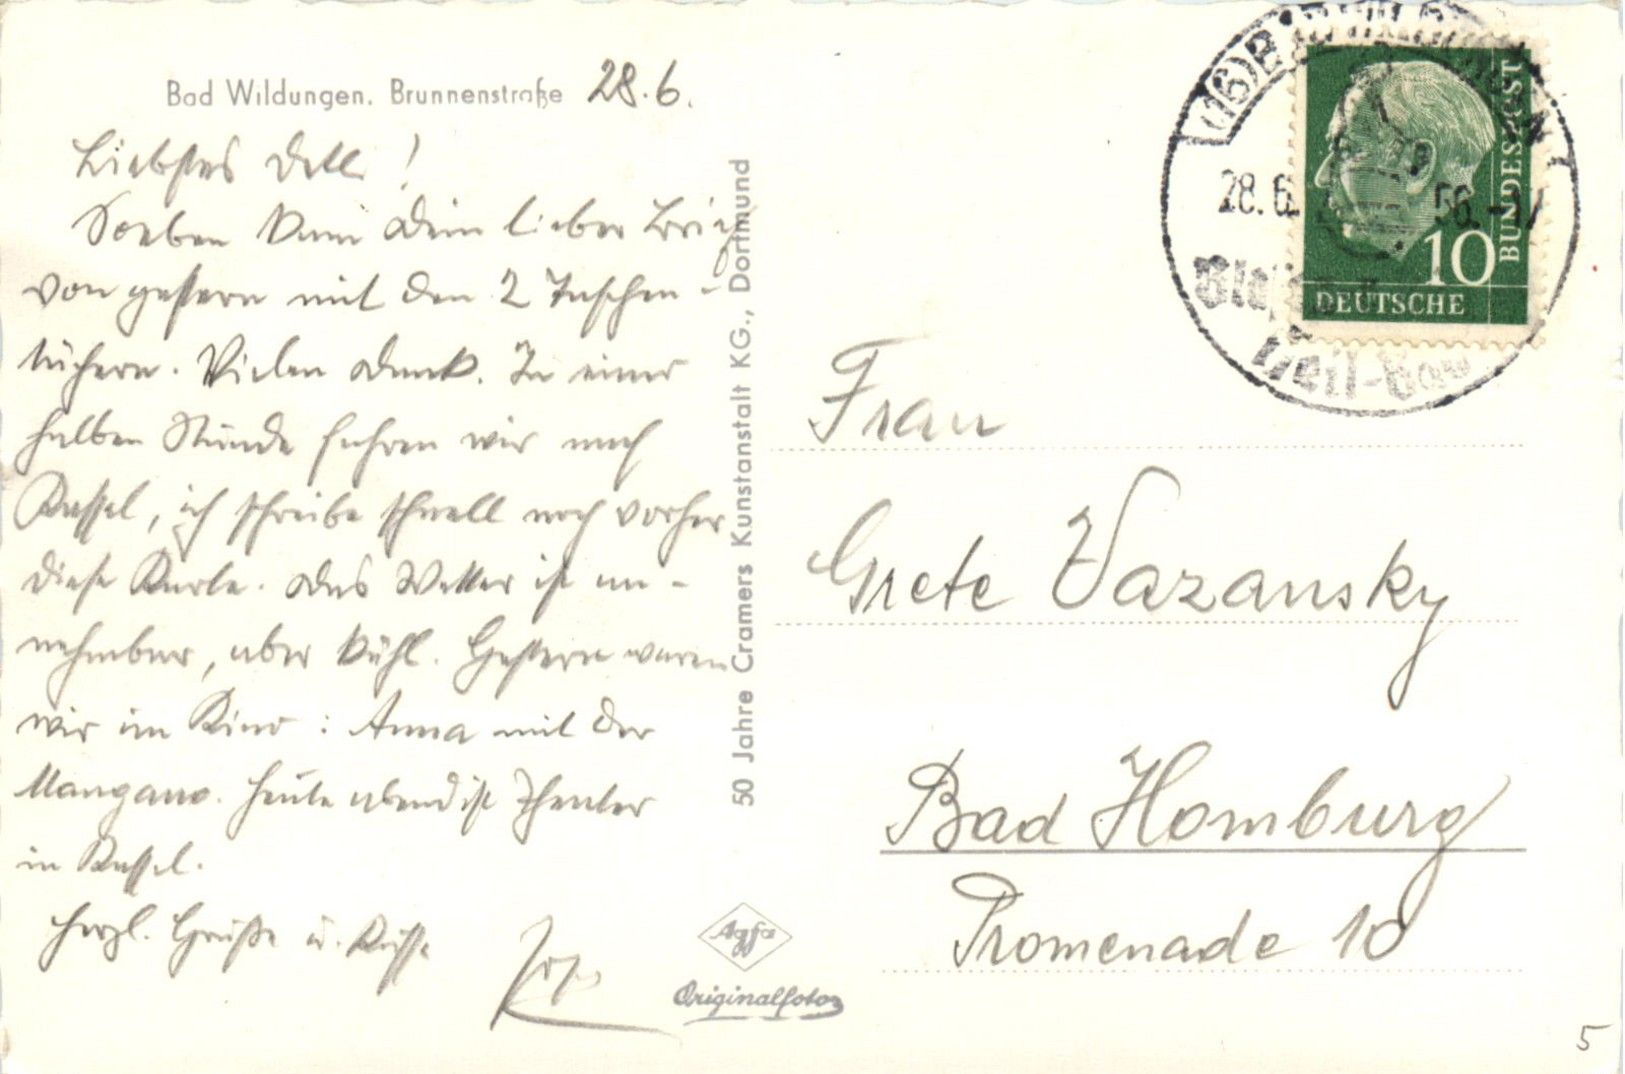 Bad Wildungen. Brunnenstraße 28.6.
Liebstes Dell!
Soeben kam Dein lieber Brief
von gestern mit den 2 Taschen-
tüchern. Vielen Dank. In einer
halben Stunde fahren wir nach
Kassel, ich schreibe schnell noch vorher
diese Karte. Das Wetter ist an-
nehmbar, aber kühl. Gestern waren
wir im Kino: Anna mit der
Mangano. Heute abend ist Theater
in Kassel.
Herzl. Grüße u. Küsse
50 Jahre Cramers Kunstanstalt KG., Dortmund
Agfa
Originalfoto
(16) BAD WILDUNGEN
28.6. 56.-17
DEUTSCHE
BUNDESPOST
10
Frau
Grete Vazansky
Bad Homburg
Promenade 10
5